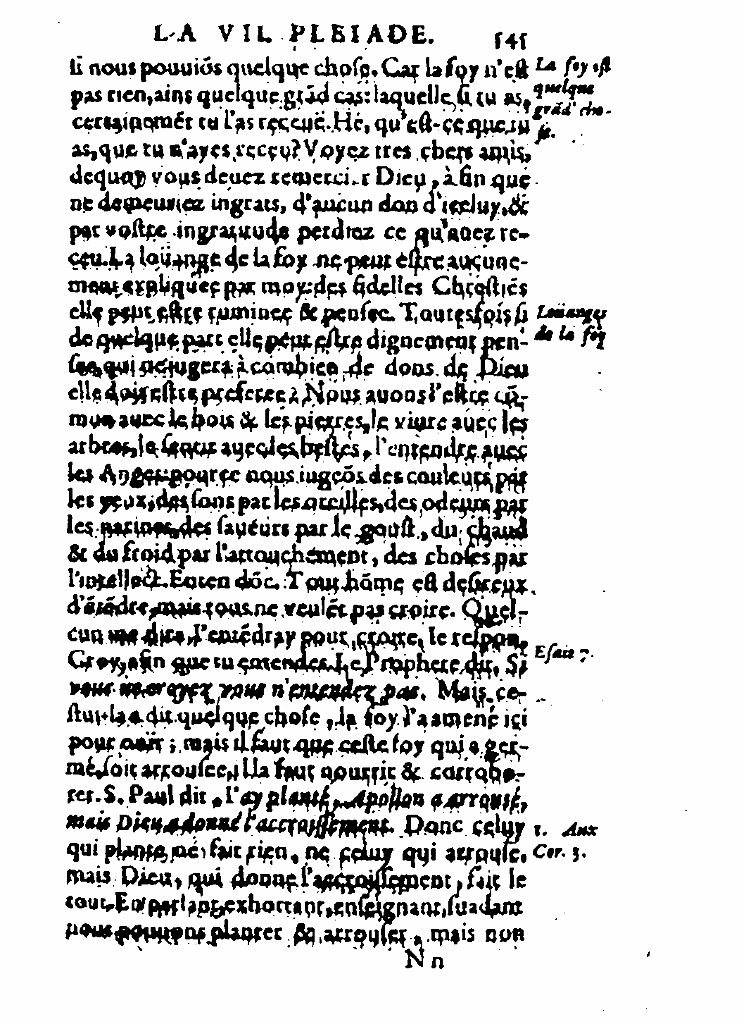 LA VII. PLEIADE. 545
si nous pouuiõs quelque chose. Car la foy n'est
La foy est
pas rien, ains quelque grãd cas: laquelle si tu as,
quelque
grãd' cho-
certainemẽt tu l'as receuë. Hé, qu'est-ce que tu
se.
as, que tu n'ayes receu? Voyez tres chers amis,
dequoy vous deuez remercier Dieu, à fin que
ne demeuriez ingrats, d'aucun don d'iceluy, &
par vostre ingratitude perdiez ce qu'auez re-
ceu. La loüange de la foy ne peut estre aucune-
ment expliquée par moy: des fidelles Chrestiẽs
elle peut estre ruminee & pensee. Toutesfois si
Loüanges
de quelque part elle peut estre dignement pen-
de la foy
see, qui ne iugera à combien de dons de Dieu
elle doit estre preferee? Nous auons l'estre cõ-
mun auec le bois & les pierres, le viure auec les
arbres, le sentir auec les bestes, l'entendre auec
les Anges: pource nous iugeõs des couleurs par
les yeux, des sons par les oreilles, des odeurs par
les narines, des saueurs par le goust, du chaud
& du froid par l'attouchement, des choses par
l'intellect. Enten dõc. Tout hõme est desireux
d'ẽtẽdre, mais tous ne veulẽt pas croire. Quel-
cun me dira, I'entẽdray pour croire, Ie respon,
Croy, afin que tu entendes. Le Prophete dit, Si
Esaie 7.
vous ne croyez vous n'entendez pas. Mais ce-
stui-la a dit quelque chose, la foy l'a amené ici
pour ouïr; mais il faut que ceste foy qui a ger-
mé, soit arrousee, il la faut nourrir & corrobo-
rer. S. Paul dit, I'ay planté, Apollon a arrousé,
mais Dieu a donné l'accroissement. Donc celuy
1. Aux
qui plante ne fait rien, ne celuy qui arrouse,
Cor. 3.
mais Dieu, qui donne l'accroissement, fait le
tout. En parlant, exhortant, enseignant, suadant
nous pouuons planter & arrouser, mais non
N n